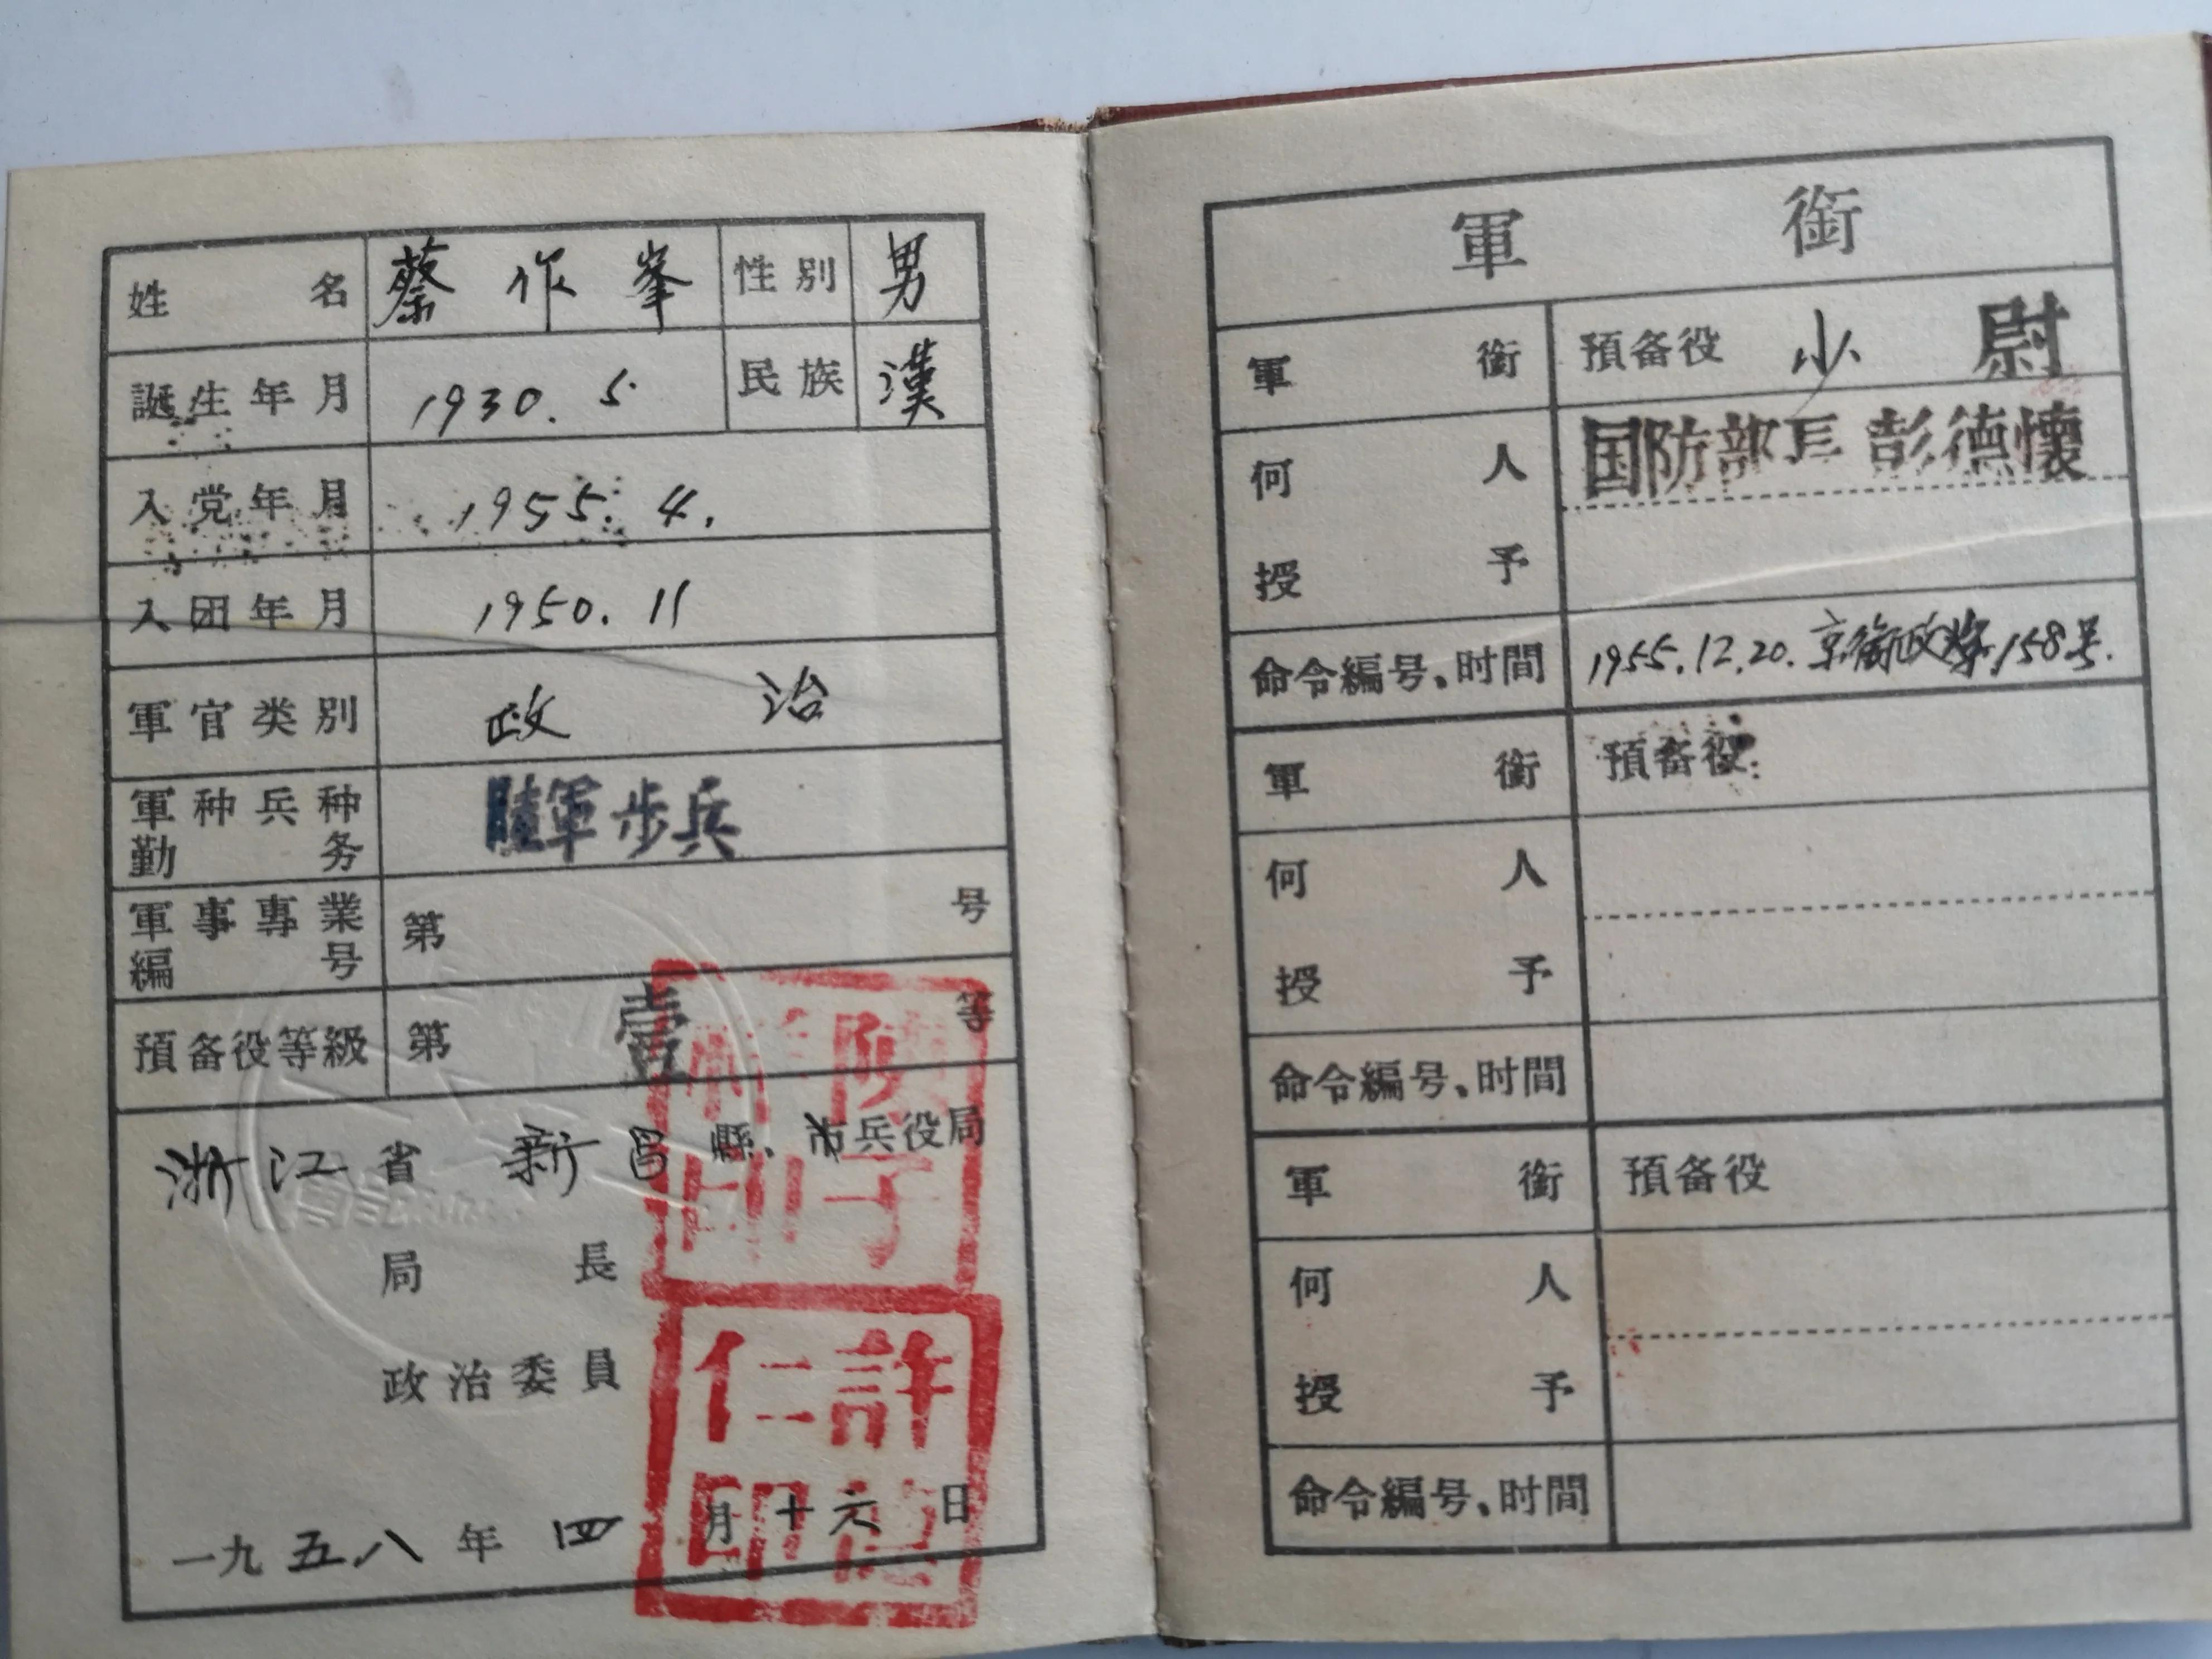 姓名 蔡作峯 性別 男
誕生年月 1930.5 民族 漢
入党年月 1955.4.
入团年月 1950.11
軍官类別 政治
軍种兵种勤务 陸軍步兵
軍事專業編号 第 号
預备役等級 第 壹 等
浙江省 新昌 縣、市兵役局
局長
政治委員
許仁印
一九五八年 四月十六日
軍銜
軍銜 預备役 少尉
何人授予 国防部長彭德懷
命令編号、时間 1955.12.20.京銜政字158号.
軍銜 預备役
何人
授予
命令編号、时間
軍銜 預备役
何人
授予
命令編号、时間